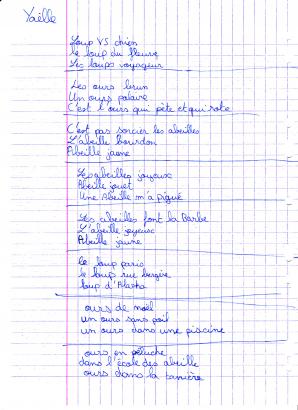 Yaëlle
Loup VS chien
le loup du fleuve
Les loups voyageur
Les ours brun
Un ours polaire
C'est l'ours qui pète et qui rote
C'est pas sorcier les abeilles
L'abeille bourdon
Abeille jaune
Les abeilles joyeux
Abeille jouet
Une Abeille m'a piqué
Les abeilles font la Barbe
L'abeille joyeuse
Abeille jaune
le loup paris
le loup rue bergère
loup d'Alaska
ours de noël
un ours sans poil
un ours dans une piscine
ours en peluche
dans l'école des abeille
ours dans la tanière